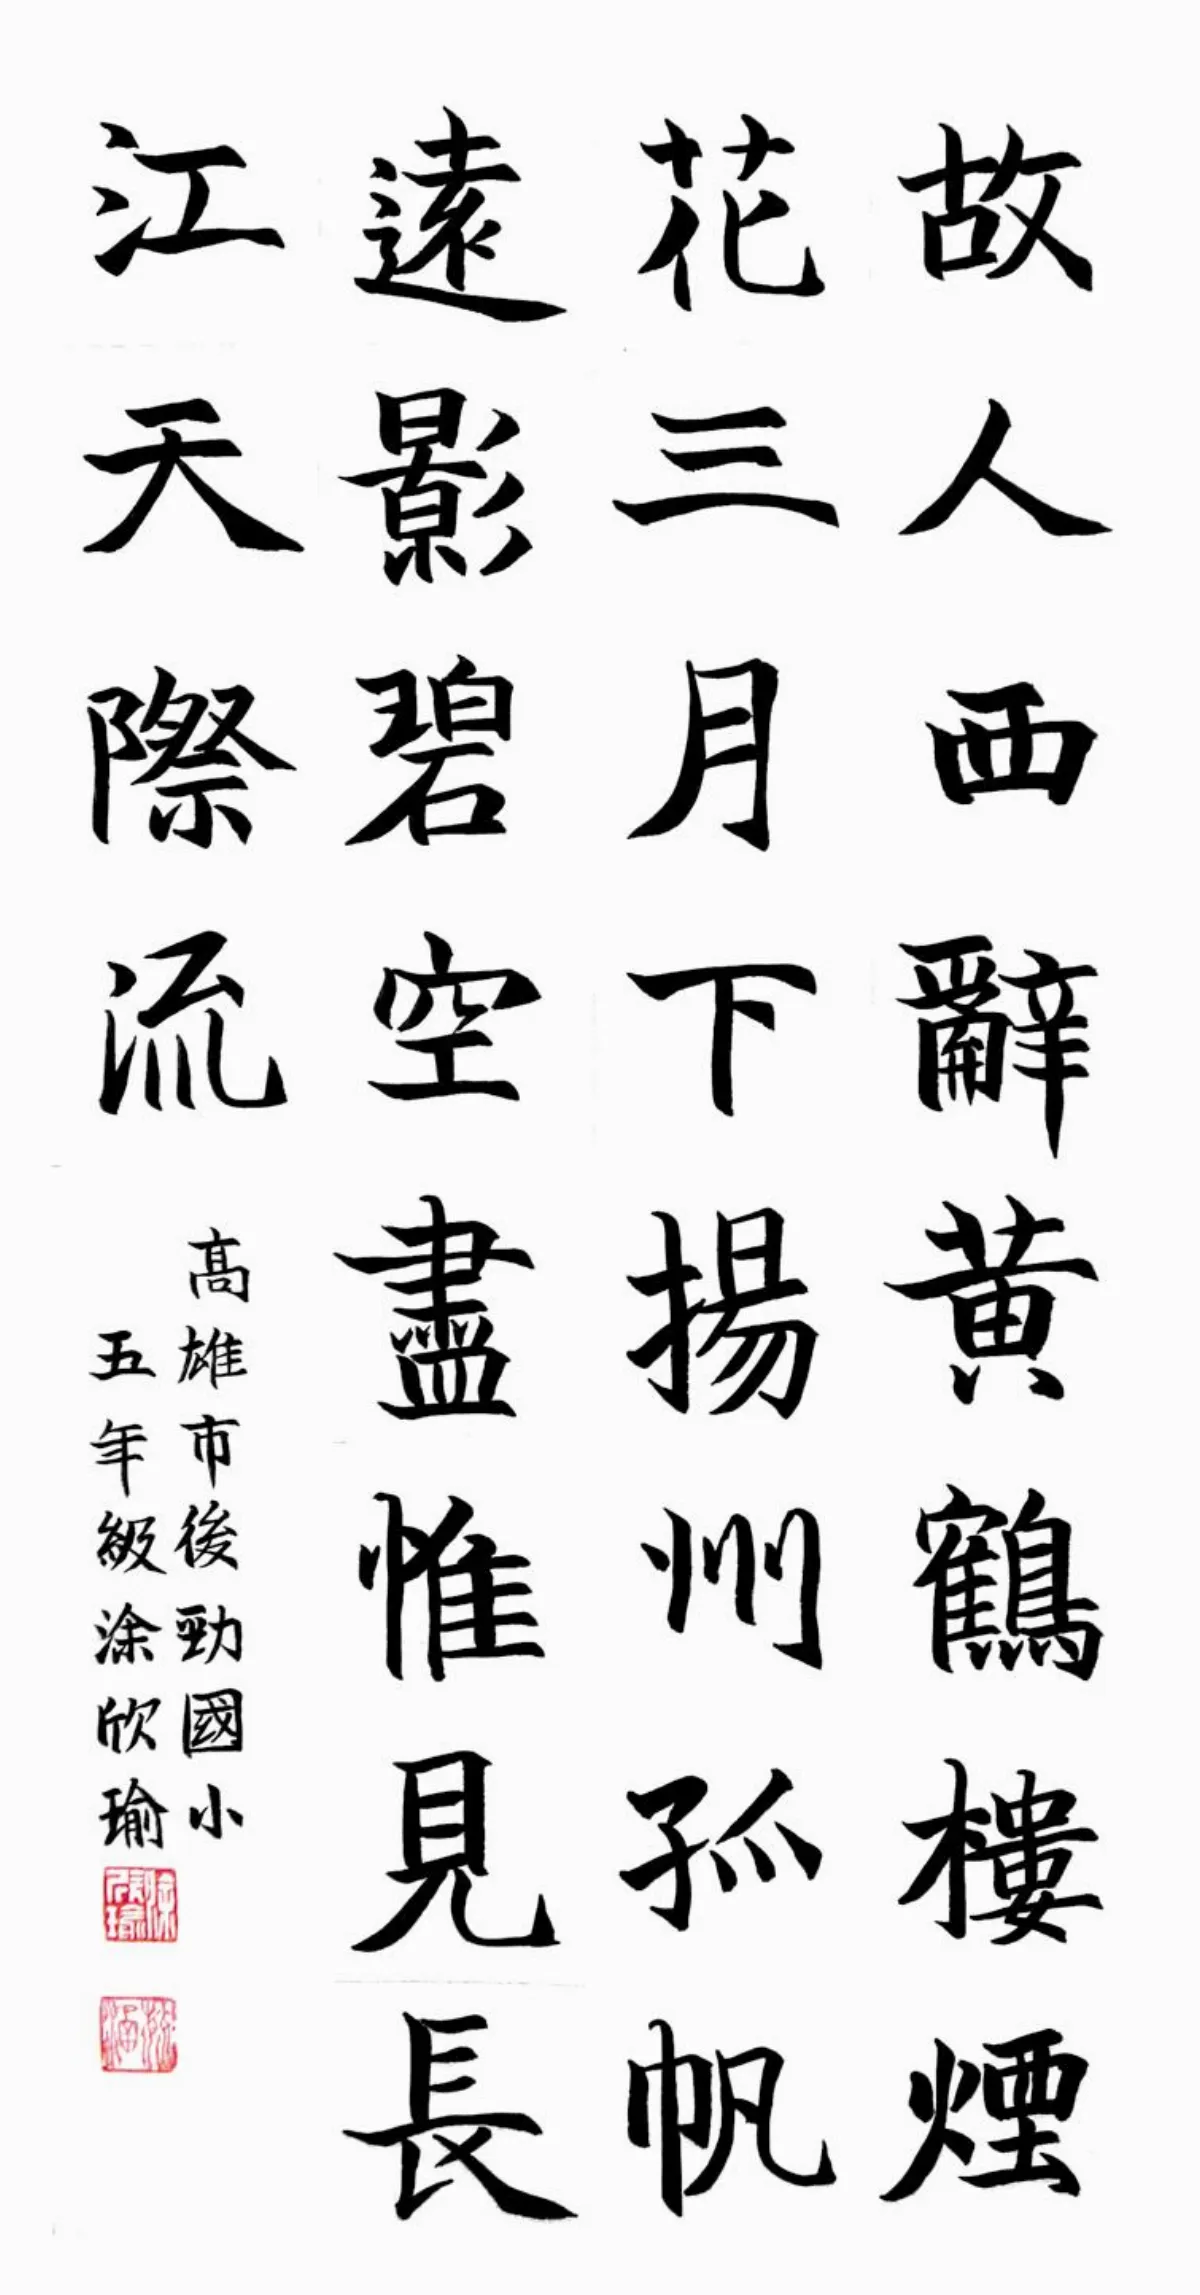 故人西辭黃鶴樓煙
花三月下揚州孤帆
遠影碧空盡惟見長
江天際流
高雄市後勁國小
五年級涂欣瑜